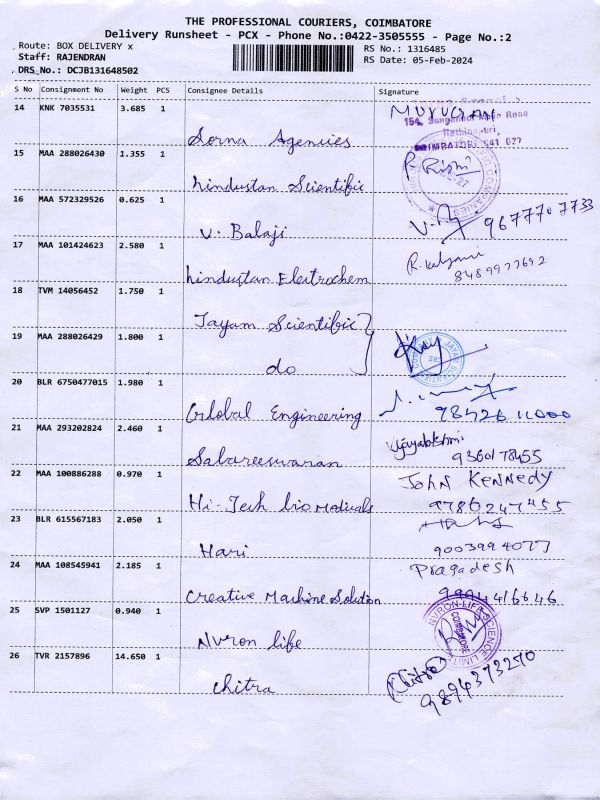 THE PROFESSIONAL COURIERS, COIMBATORE
Delivery Runsheet - PCX - Phone No.:0422-3505555 - Page No.:2
Route: BOX DELIVERY x
RS No.: 1316485
Staff: RAJENDRAN
RS Date: 05-Feb-2024
DRS No.: DCJB131648502
S No Consignment No Weight PCS Consignee Details Signature
14 KNK 7035531 3.685 1 Sorna Agencies MURUGAN
154, Road
641 027
15 MAA 288026430 1.355 1 hindustan Scientific P. Rismi
16 MAA 572329526 0.625 1 V. Balaji 9677707733
17 MAA 101424623 2.580 1 hindustan Electrochem R. Kalyani
8489977692
18 TVM 14056452 1.750 1 Jayam Scientific
19 MAA 288026429 1.800 1 do
20 BLR 6750477015 1.980 1 Global Engineering
98426 11000
21 MAA 293202824 2.460 1 Sabareeswaran Vijayalakshmi
9360178455
22 MAA 100886288 0.970 1 Hi-Tech bio Medicals JOHN KENNEDY
9786247455
23 BLR 615567183 2.050 1 Hari
9003994077
24 MAA 108545941 2.185 1 Creative Machine Solution Pragadesh
25 SVP 1501127 0.940 1 Nvron life NVRON LIFE SCIENCE LIMITED
COIMBATORE
26 TVR 2157896 14.650 1 Chitra Chitra
9894373270